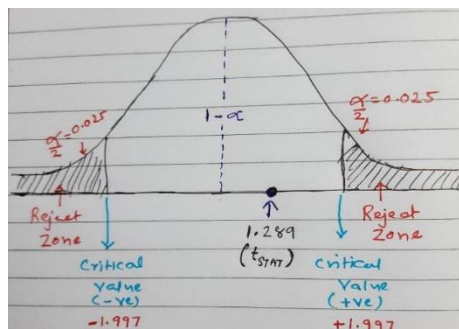 α/2 = 0.025
α/2 = 0.025
1-α
Reject
Zone
1.289
(tSTAT)
Reject
Zone
Critical
Value
(-ve)
-1.997
Critical
Value
(+ve)
+1.997